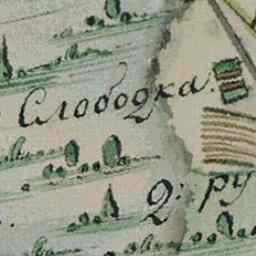 Слободка
2: ру